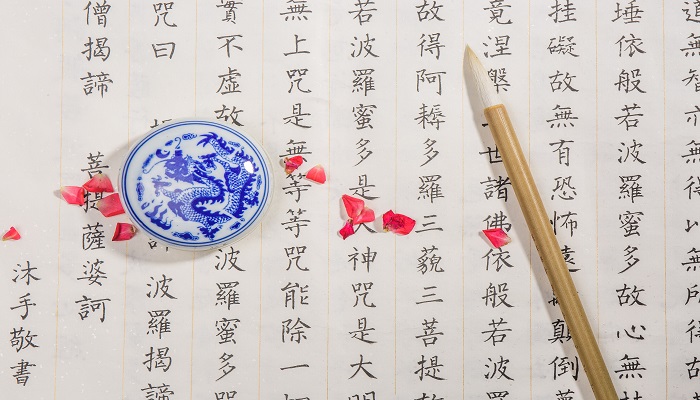 道無智亦無得以無所得
埵依般若波羅蜜多故心無
挂礙故無有恐怖遠顛倒夢
竟涅槃世諸佛依般若波羅
故得阿耨多羅三藐三菩提故
若波羅蜜多是大神咒是大明
無上咒是無等等咒能除一切
實不虛故波羅蜜多咒
咒曰波羅揭諦
僧揭諦菩提薩婆訶
沐手敬書